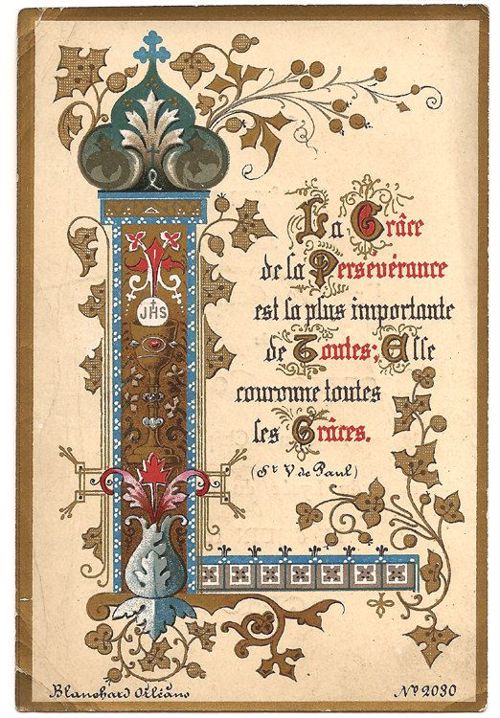 JHS
La Grâce
de la Persévérance
est la plus importante
de Toutes; Elle
couronne toutes
les Grâces.
(St V de Paul)
Blanchard Orléans
No 2030